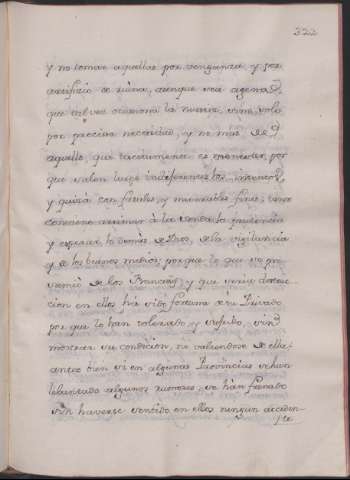 322
y no tomar aquellas por venganza, y por
artificio de ruina, aunque sea agena,
que tal vez ocasiona la nuestra, sino solo
por precisa necesidad, y no mas de
aquello, que tacitamente es menester, por
que salen luego indiferentes los intentos,
y quizá con fatales, y miserables fines;
conviene arrimar á la la prudencia
y esperar lo demas de Dios, de la vigilancia
y de los buenos medios; porque lo que se pre
de los Franceses, y que
cion en ellos há sido fortuna de su Privado
por que lo han tolerado, y sufrido, sin
mostrar su condicion, ni valiendose de ella:
antes bien si en algunas Provincias se han
lebantado algunos rumores, se hán
sin haverse sentido en ellos ningun acciden-
te